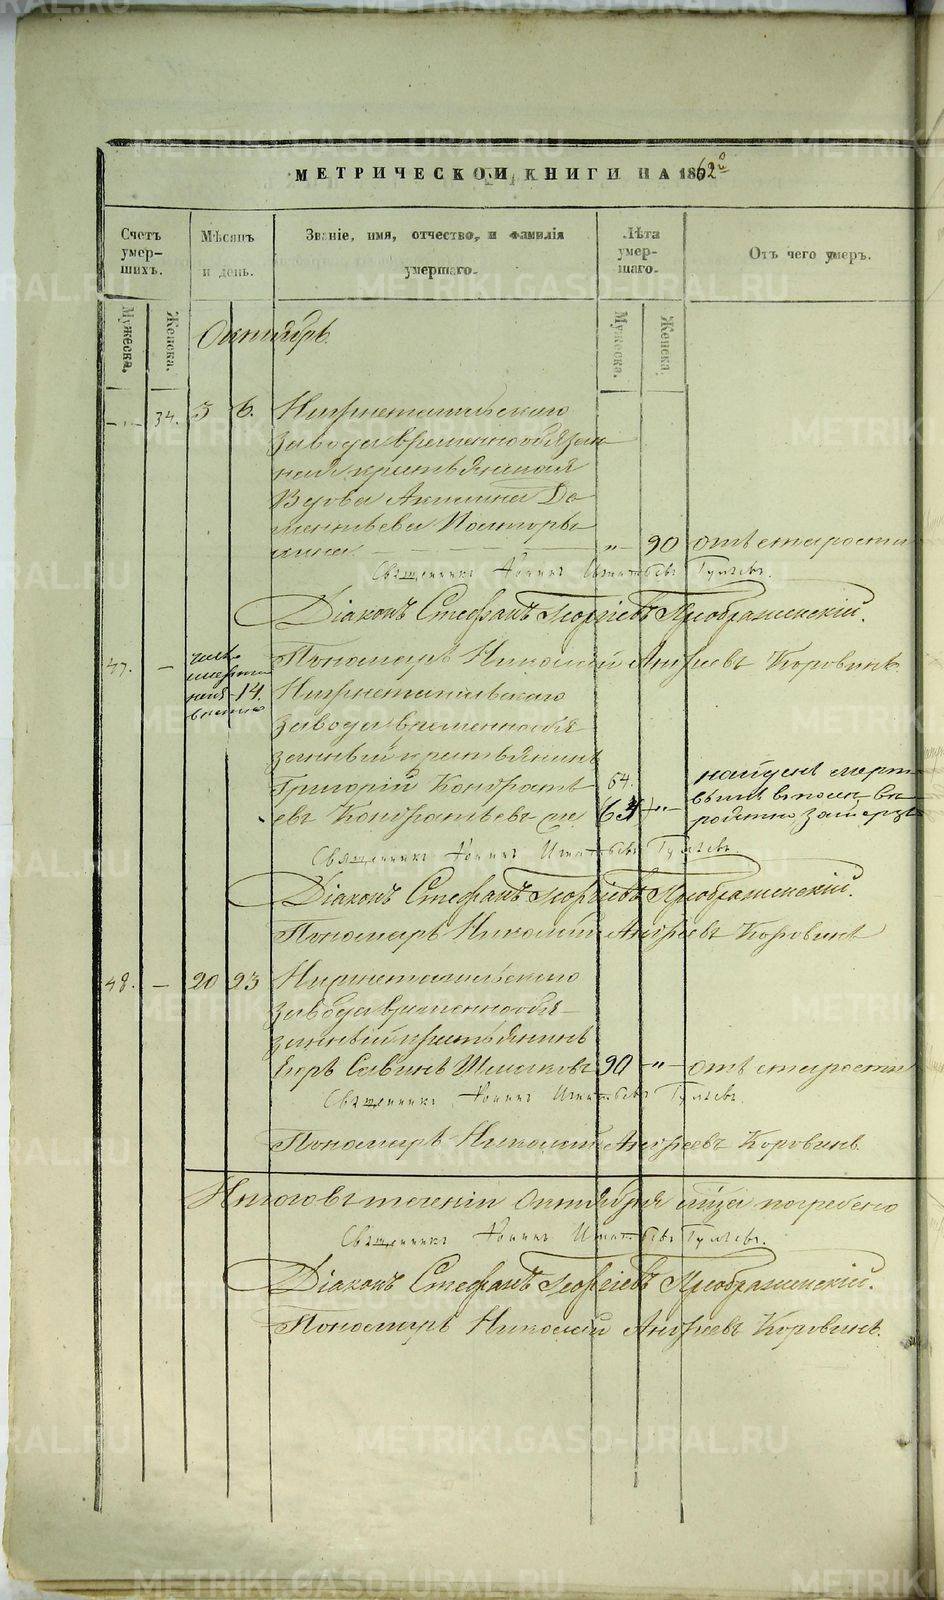 МЕТРИЧЕСКОЙ КНИГИ НА 1862й
Счетъ умер-шихъ.
Мѣсяцъ и день.
Званіе, имя, отчество, и фамилія умершаго.
Лѣта умер-шаго.
Отъ чего умеръ.
Мужеска.
Женска.
Мужеска.
Женска.
Октябрь.
34. 3 6. Нижнетагильскаго
завода временнообязан
ная крестьянская
Вдова Акилина До
ментьева
„ 90 отъ старости
Священникъ Іоаннъ Игнатьевъ
Діаконъ Стефанъ Георгіевъ Преображенскій.
47. — Пономарь Николай Андреевъ Коровинъ
14. Нижнетагильскаго
завода временнообя
занный крестьянинъ
Григорій Кондратъ 64.
евъ Кондратьевъ
найденъ мерт
вымъ
Священникъ Іоаннъ Игнатьевъ
Діаконъ Стефанъ Георгіевъ Преображенскій.
Пономарь Николай Андреевъ Коровинъ
48. — 20 23 Нижнетагильскаго
завода временнообя-
занный крестьянинъ
Егоръ Савинъ 90 — „ — отъ старости
Священникъ Іоаннъ Игнатьевъ
Пономарь Николай Андреевъ Коровинъ.
Итого въ теченіи Октября м-ца погребено
Священникъ Іоаннъ Игнатьевъ
Діаконъ Стефанъ Георгіевъ Преображенскій.
Пономарь Николай Андреевъ Коровинъ.
METRIKI.GASO-URAL.RU